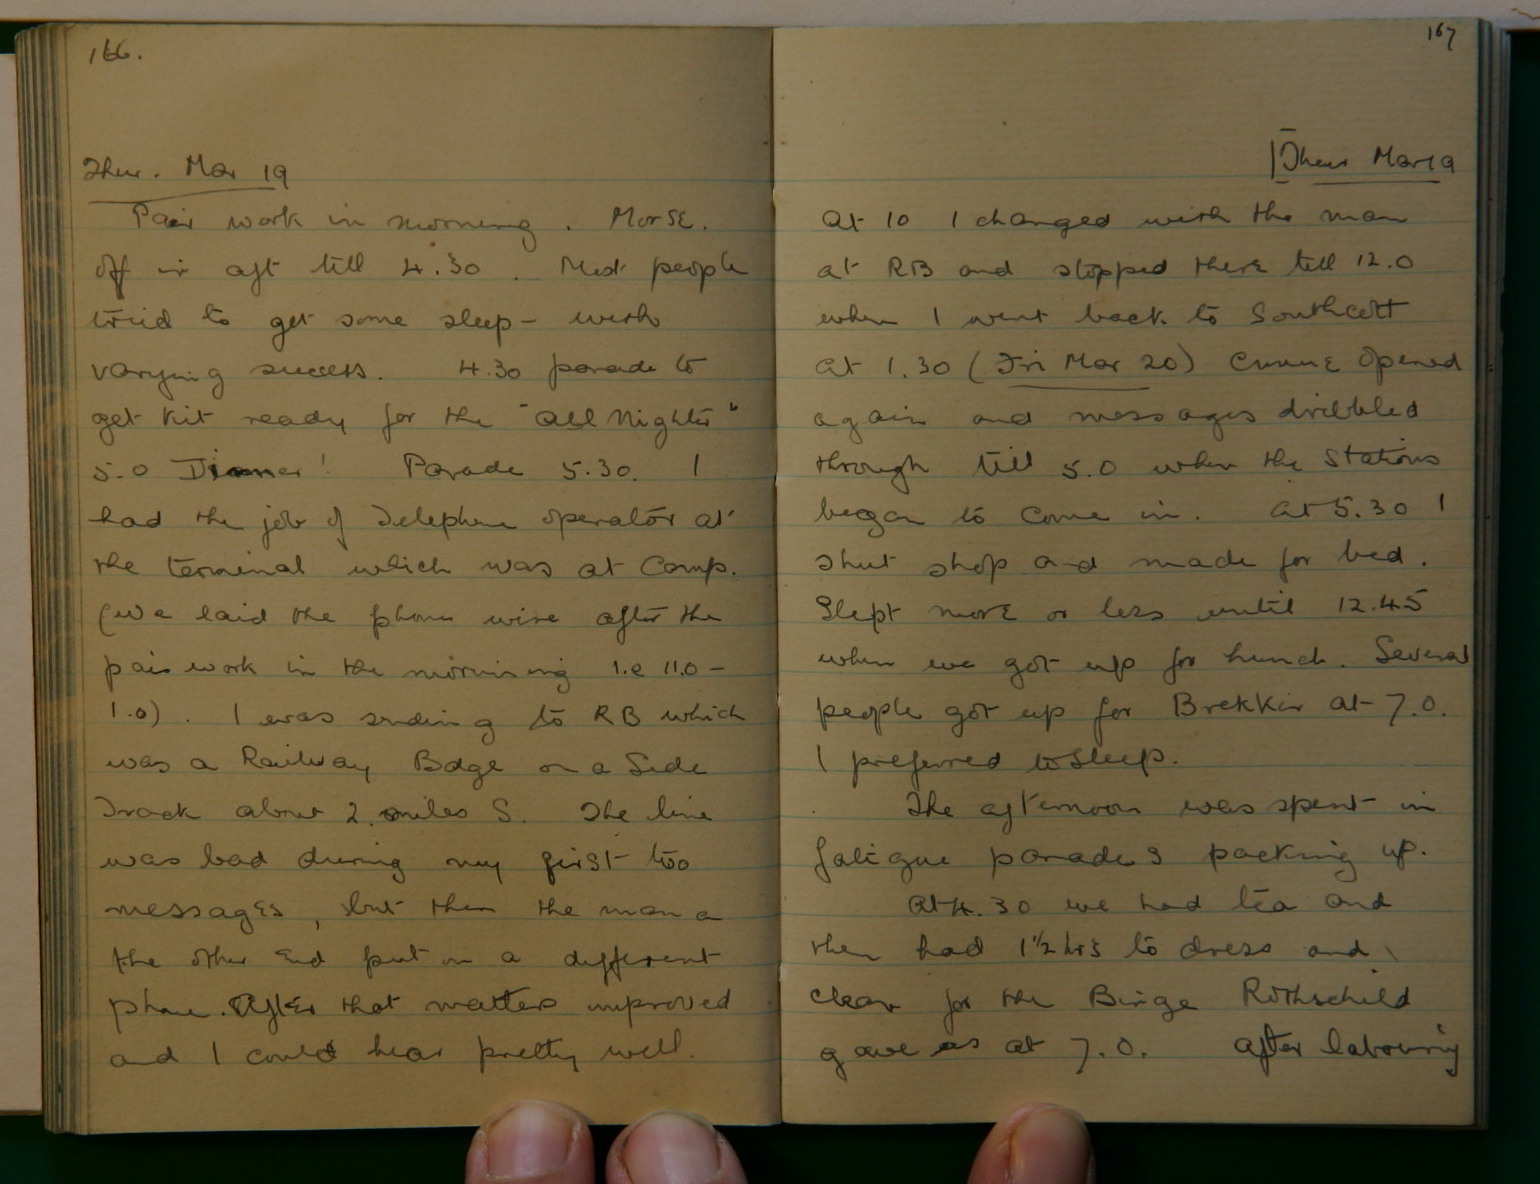 166.
Thur. Mar 19
Pair work in morning. Morse.
off in aft till 4.30. Most people
tried to get some sleep - with
varying success. 4.30 parade to
get kit ready for the "All Nighter"
5.0 Dinner! Parade 5.30. I
had the job of Telephone operator at
the terminal which was at Camp.
(we laid the phone wire after the
pair work in the morning i.e 11.0 -
1.0). I was sending to RB which
was a Railway Bdge on a Side
Track about 2 miles S. The line
was bad during my first two
messages, but then the man a
the other End put on a different
phone. After that matters improved
and I could hear pretty well.
167
Thur Mar 19
At 10 I changed with the man
at RB and stopped there till 12.0
when I went back to Southcott
At 1.30 (Fri Mar 20) opened
again and messages dribbled
through till 5.0 when the Stations
began to come in. At 5.30 I
shut shop and made for bed.
Slept more or less until 12.45
when we got up for lunch. Several
people got up for Brekker at 7.0.
I preferred to sleep.
The afternoon was spent in
fatigue parades packing up.
At 4.30 we had tea and
then had 1 1/2 hrs to dress and
clean for the Binge Rothschild
gave us at 7.0. After labouring